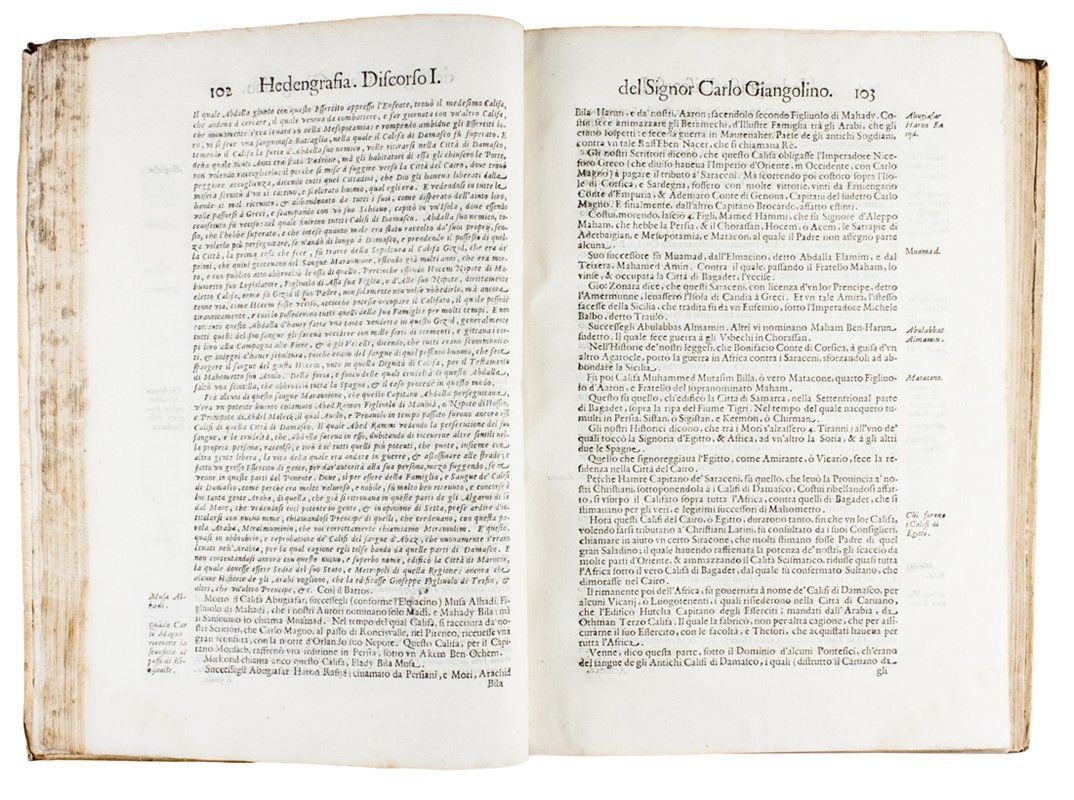 102 Hedengrafia. Discorso I.
Il quale Abdalla giunto con questo Essercito appresso l'Eufrate, trovò il medesimo Califa,
che andava à cercare, il quale veniva da combattere, e far giornata con vn'altro Califa,
che nuovamente s'era levato sù nella Mesopotamia: e rompendo ambidue gli Esserciti lo-
ro, vi si fece vna sanguinosa Battaglia, nella quale il Califa di Damasco fù superato. E
temendo il Califa la furia d'Abdalla suo nemico, volle ritirarsi nella Città di Damasco,
della quale tanti Anni era stato Padrone, mà gli habitatori di essa gli chiusero le Porte,
non volendo raccoglierlo: il perche si mise à fuggire verso la Città del Cairo, dove trovò
peggiore accoglienza, dicendo tutti quei Cittadini, che Dio gli haveva liberati dalla
misera servitù d'vn sì cattivo, e scelerato huomo, qual egli era. E vedendosi in tutte le
bande sì mal ricevuto, & abbandonato da tutti i suoi, come disperato dell'aiuto loro,
volle passarsi à Greci, e scampando con vn suo Schiavo, capitò in vn'Isola, dove essendo
conosciuto fù vcciso: nel quale finirono tutti i Califi di Damasco. Abdalla suo nemico, to-
sto, che l'hebbe superato, e che intese quanto male era stato raccolto da' suoi proprij, sen-
za volerlo più perseguitare, se n'andò di lungo à Damasco, e prendendo il possesso di quel-
la Città, la prima cosa che fece, fù trarre della Sepoltura il Califa Gizid, che era de'
primi, che quivi giacevano del sangue Maraunione, essendo già molti anni, che era mor-
to, e con publico atto abbrucciò le ossa di quello. Percioche essendo Hocem Nipote di Ma-
humetto suo Legislatore, Figliuolo di Assa sua Figlia, e d'Alle suo Nipote, dirittamente
eletto Califa, come fù Gizid il suo Padre, non solamente non volle vbbedirlo, mà ancora
tenne via, come Hocem fosse vcciso, accioche potesse occupare il Califato, il quale possedè
tirannicamente, e così lo possederono tutti quelli della sua Famiglia per molti tempi. E non
contento questo Abdalla d'haver fatta vna tanta vendetta in questo Gizid, generalmente
tutti quelli del suo sangue gli faceva vccidere con mille sorti di tormenti, e gittava i cor-
pi loro alla Campagna alle Fiere, & à gli Vccelli, dicendo, che tutti erano scommunica-
ti, & indegni d'haver sepoltura, poiche erano del sangue di quel pessimo huomo, che fece
spargere il sangue del giusto Hocem, vnto in quella Dignità di Califa, per il Testamento
di Mahometto suo Avolo. Della furia, e fuoco delle quali crudeltà di questo Abdalla,
saltò vna scintilla, che abbrucciò tutta la Spagna, & il caso procede in questo modo.
Frà alcuni di questo sangue Maraunione, che questo Capitano Abdalla perseguitava,
v'era vn potente huomo chiamato Abed Ramon Figliuolo di Mauhià, e Nipote di Hossin,
e Pronipote di Abdel Malech, il qual Avolo, e Proavolo in tempo passato furono ancora essi
Califi di quella Città di Damasco. Il quale Abed Ramon vedendo la persecutione del suo
sangue, e le crudeltà, che Abdalla faceva in esso, dubitando di riceverne altre simili nel-
la propria persona, raccolse, e tirò à se tutti quelli più potenti, che puote, insieme con
altra gente libera, la vita della quale era andare in guerre, & assassinare alle strade; e
fatto vn grosso Essercito di gente, per dar'autorità alla sua persona, mezo fuggendo, se ne
venne in queste parti del Ponente. Dove, sì per essere della Famiglia, e Sangue de' Califi
di Damasco, come perche era molto valoroso, e nobile, fù molto ben ricevuto, e concorse à
lui tanta gente Araba, di quella, che già si ritrovava in queste parti de gli Algarui di là
dal Mare, che vedendosi così potente in gente, & in opinione di Setta, prese ardire d'in-
titolarsi con nuovo nome, chiamandosi Prencipe di quelli, che credevano, con questa pa-
rola Arabica, Miralmuminin, che noi corrottamente chiamiamo Miramulini. E questo
quasi in obbrobrio, e reprobatione de' Califi del sangue d'Abaz, che nuovamente s'erano
levati nell'Arabia, per la qual cagione egli tolse bando da quelle parti di Damasco. E
non contentandosi ancora con questo nuovo, e superbo nome, edificò la Città di Marocco,
la quale dovesse essere Sedia del suo Stato, e Metropoli di quella Regione: ancora che
alcune Historie de gli Arabi vogliono, che la edificasse Gioseppe Figliuolo di Tesfin, &
altri, che vn'altro Prencipe, &c. Così il Barros.
Musa Al-
hadi.
Morto il Califa Abugiafar, successegli (conforme l'Elmacino) Musa Alhadi, Fi-
gliuolo di Mahadi, che i nostri Autori nominano solo Madi, e Mahady Bila; mà
il Sansovino lo chiama Muamad. Nel tempo del qual Califa, si racconta da' no-
stri Scrittori, che Carlo Magno, al passo di Roncisvalle, nel Pireneo, ricevesse vna
gran sconfitta, con la morte d'Orlando suo Nepote. Questo Califa, per il Capi-
tano Monsach, raffrenò vna seditione in Persia, sotto vn Akem Ben Ochem.
Quādo Car
lo Magno
ricevette la
sconfitta al
passo di Rō-
cisvalle.
Mirkond chiama anco questo Califa, Elady Bila Musa.
Successegli Abugiafar Haron Rasijd; chiamato da Persiani, e Mori, Arachid
Bila
del Signor Carlo Giangolino. 103
Bila Harun, e da' nostri, Aaron; facendolo secondo Figliuolo di Mahady. Co-
stui fece ammazzare gli Beramechi, d'Illustre Famiglia trà gli Arabi, che gli
erano sospetti: e fece la guerra in Maurenaher, Paese de gli antichi Sogdiani,
contra vn tale RaffEben Nacer, che si chiamava Rè.
Abugiafar
Haron Ra
sijd.
Gli nostri Scrittori dicono, che questo Califa obligasse l'Imperadore Nice-
foro Greco (che diviso haveua l'Imperio d'Oriente, in Occidente, con Carlo
Magno) à pagare il tributo à Saraceni. Mà scorrendo poi costoro sopra l'Iso-
le di Corsica, e Sardegna, fossero con molte vittorie, vinti da Ermiengario
Conte d'Empuria, & Ademaro Conte di Genova, Capitani del sudetto Carlo
Magno. E finalmente, dall'altro Capitano Brocardo, affatto estinti.
Costui, morendo, lasciò 4. Figli, Mamed Hammi, che fù Signore d'Aleppo
Maham, che hebbe la Persia, & il Chorassan, Hocem, o Acem, le Satrapie di
Aderbaigian, e Mesopotamia; e Matacon, al quale il Padre non assegnò parte
alcuna.
Suo successore fù Muamad, dall'Elmacino, detto Abdalla Elamim, e dal
Teixera, Mahamed Amin. Contra il quale, passando il Fratello Maham, lo
vinse, & occupata la Città di Bagadet, l'vccise.
Muamad.
Gio: Zonara dice, che questi Saraceni, con licenza d'vn lor Prencipe, detto
l'Amermunne, levassero l'Isola di Candia à Greci. Et vn tale Amira, l'istesso
facesse della Sicilia, che tradita fù da vn Eufemio, sotto l'Imperadore Michele
Balbo, detto Traulo.
Successegli Abulabbas Almamin. Altri vi nominano Maham Ben-Harun
sudetto. Il quale fece guerra à gli Vsbechi in Chorassan.
Abulabbas
Almamon.
Nell'Historie de' nostri leggesi, che Bonifacio Conte di Corsica, à guisa d'vn
altro Agatocle, portò la guerra in Africa contra i Saraceni, sforzandoli ad ab-
bondare la Sicilia.
Fù poi Califa Muhammed Mutasim Billa, ò vero Matacone, quarto Figliuo-
lo d'Aaron, e Fratello del sopranominato Maham.
Matacone.
Questo fù quello, ch'edificò la Città di Samarra, nella Settentrional parte
di Bagadet, sopra la ripa del Fiume Tigri. Nel tempo del quale nacquero tu-
multi in Persia, Sistan, ò Sigistan, e Kermon, ò Chirman.
Gli nostri Historici dicono, che tra i Mori s'alzassero 4. Tiranni; all'vno de'
quali toccò la Signoria d'Egitto, & Africa, ad vn'altro la Soria, & à gli altri
due le Spagne.
Quello che signoreggiava l'Egitto, come Amirante, ò Vicario, fece la re-
sidenza nella Città del Cairo.
Perche Hamre Capitano de' Saraceni, fù quello, che levò la Provincia à no-
stri Christiani, sottoponendola à i Califi di Damasco. Costui ribellandosi affat-
to, si vsurpò il Califato sopra tutta l'Africa, contra quelli di Bagadet, che si
stimavano per gli veri, e legitimi successori di Mahometto.
Hora questi Califi del Cairo, ò Egitto, durarono tanto, fin che vn lor Califa,
volendo farsi tributario a' Christiani Latini, fù consultato da i suoi Consiglieri,
chiamare in aiuto vn certo Siracone, che molti stimano fosse Padre di quel
gran Saladino; il quale havendo raffrenata la potenza de' nostri, gli scacciò da
molte parti d'Oriente. E ammazzando il Califa Scismatico, ridusse quasi tutta
l'Africa sotto il vero Califa di Bagadet, dal quale fù confermato Sultano, che
dimorasse nel Cairo.
Chi furono
i Califi di
Egitto.
Il rimanente poi dell'Africa, fù governata à nome de' Califi di Damasco, per
alcuni Vicarij, ò Luogotenenti, i quali risiederono nella Città di Caruano,
che l'Edificò Hutelta Capitano degli Esserciti; mandati dall'Arabia, da
Othman Terzo Califa. Il quale la fabricò, non per altra cagione, che per assi-
curarne il suo Essercito, con le facoltà, e Thesori, che acquistati haveua per
tutta l'Africa.
Venne, dico questa parte, sotto il Dominio d'alcuni Pontefici, ch'erano
del sangue de gli Antichi Califi di Damasco, i quali (distrutto il Caruano da
gli